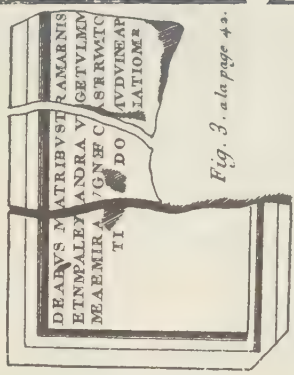 DEABVS MATRIBVSTRAMARNIS
ETNMPALEXANDRA V GETVLMM
MEAEMIRA VGNÆ CASTRRWTC
TI DO MVDVINEAP
LATIOMR
Fig. 3. a la page 42.